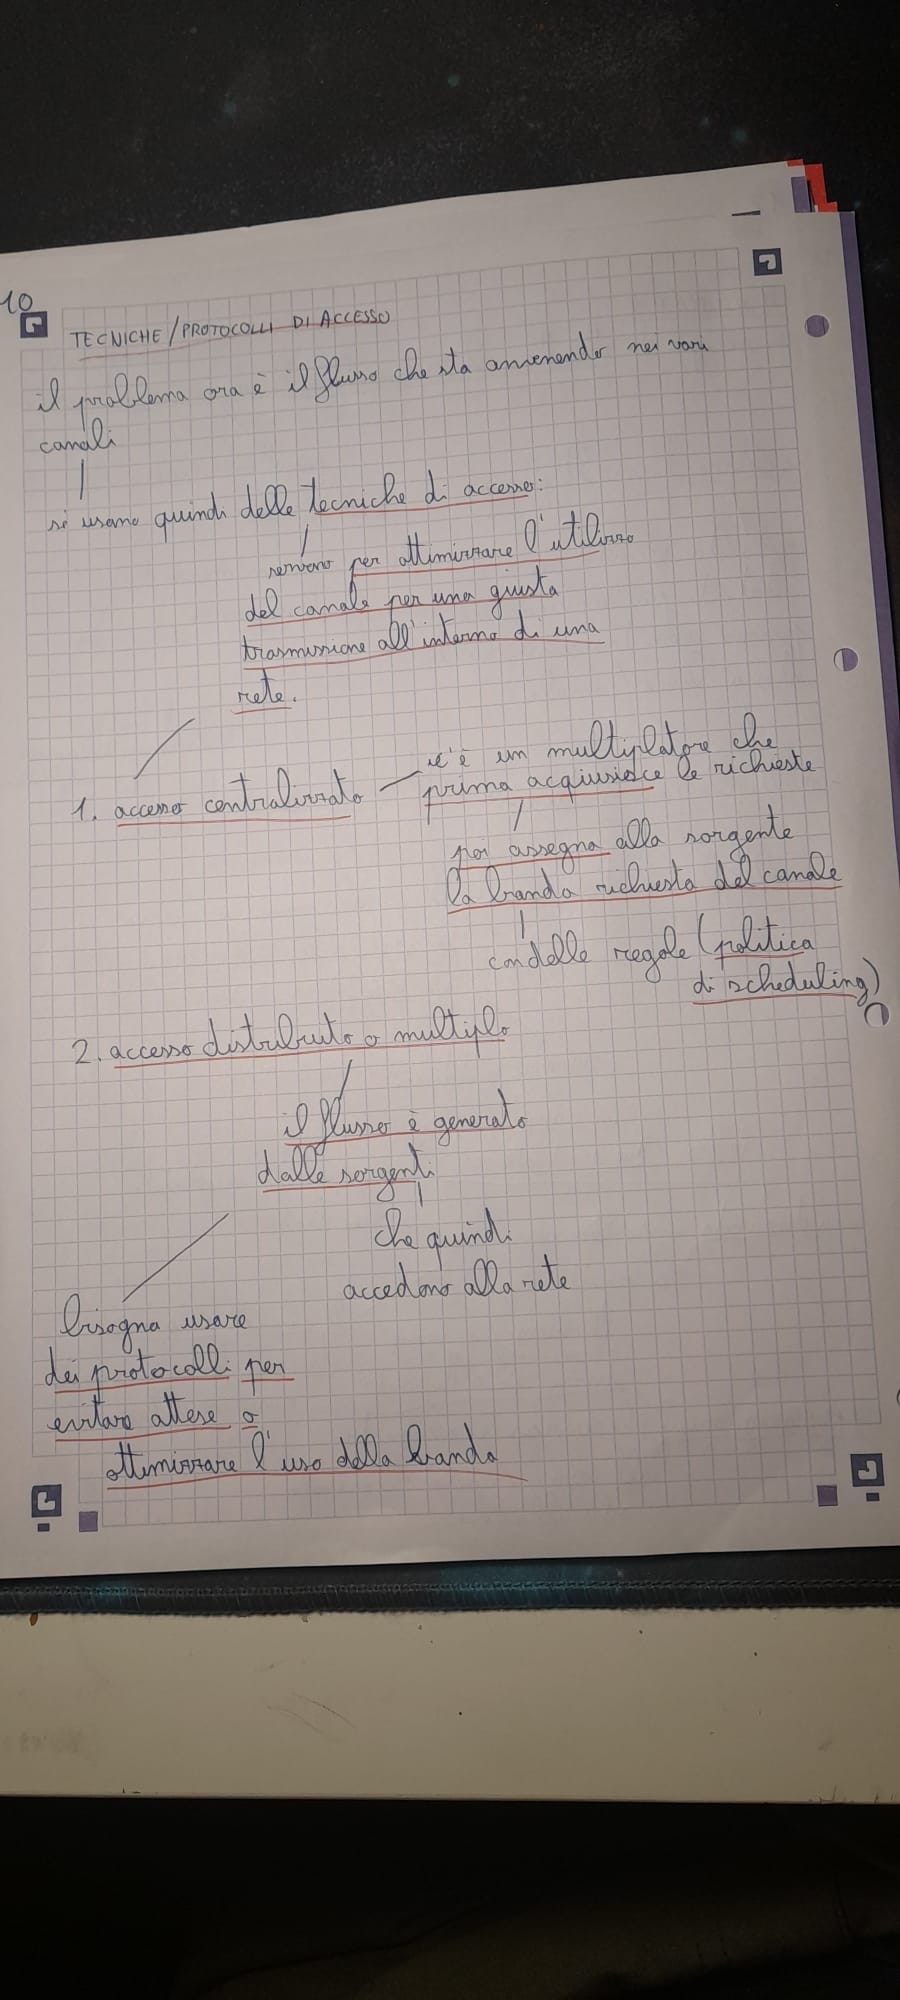 10
TECNICHE/PROTOCOLLI DI ACCESSO
il problema ora è il flusso che sta avvenendo nei vari
canali
si usano quindi delle tecniche di accesso:
servono per ottimizzare l'utilizzo
del canale per una giusta
trasmissione all'interno di una
rete.
1. accesso centralizzato
c'è un multiplatore che
prima acquisisce le richieste
poi assegna alla sorgente
la banda richiesta del canale
con delle regole (politica
di scheduling)
2. accesso distribuito o multiplo
il flusso è generato
dalle sorgenti
che quindi
accedono alla rete
bisogna usare
dei protocolli per
evitare attese o
ottimizzare l'uso della banda